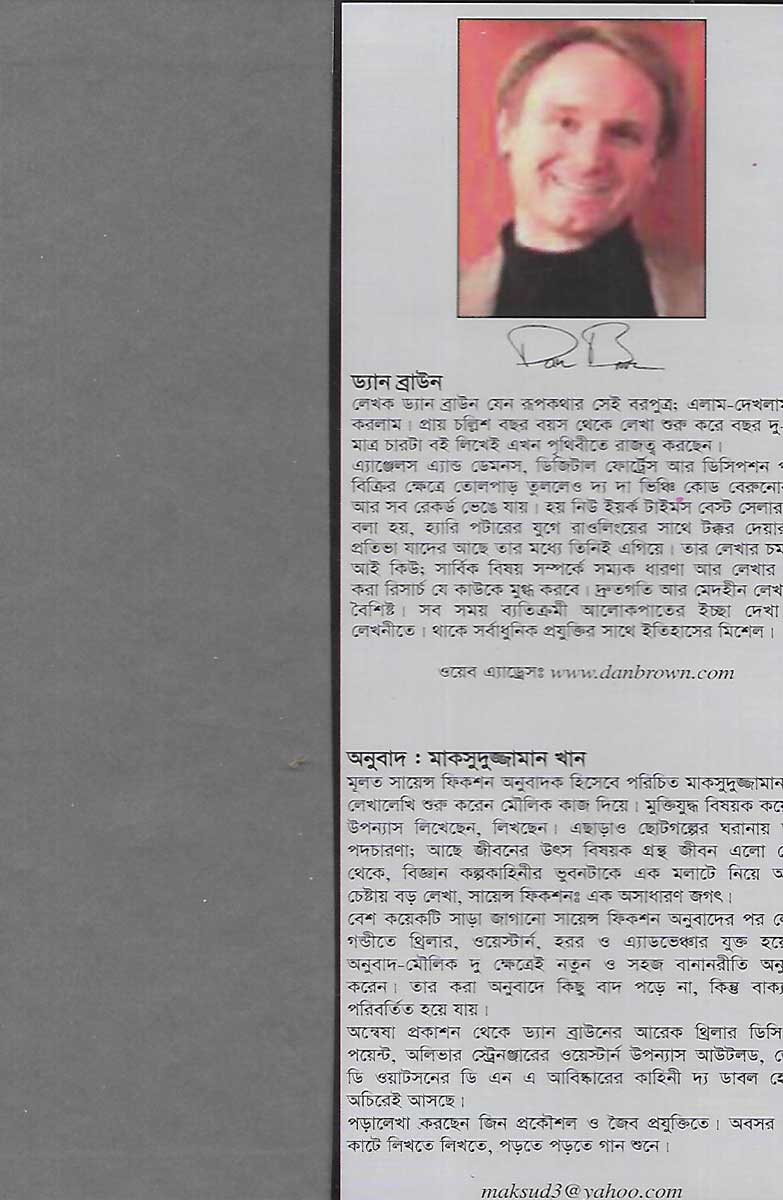 Dan Brown
ড্যান ব্রাউন
লেখক ড্যান ব্রাউন যেন রূপকথার সেই বরপুত্র; এলাম-দেখলাম
করলাম। প্রায় চল্লিশ বছর বয়স থেকে লেখা শুরু করে বছর দু-
মাত্র চারটা বই লিখেই এখন পৃথিবীতে রাজত্ব করছেন।
এ্যাঞ্জেলস এ্যান্ড ডেমনস, ডিজিটাল ফোর্ট্রেস আর ডিসিপশন
বিক্রির ক্ষেত্রে তোলপাড় তুললেও দ্য দা ভিঞ্চি কোড
আর সব রেকর্ড ভেঙে যায়। হয় নিউ ইয়র্ক টাইমস বেস্ট সেলার
বলা হয়, হ্যারি পটারের যুগে রাওলিংয়ের সাথে টক্কর দেয়ার
প্রতিভা যাদের আছে তার মধ্যে তিনিই এগিয়ে। তার লেখার
আই কিউ; সার্বিক বিষয় সম্পর্কে সম্যক ধারণা আর লেখার
করা রিসার্চ যে কাউকে মুগ্ধ করবে। দ্রুতগতি আর মেদহীন
বৈশিষ্ট। সব সময় ব্যতিক্রমী আলোকপাতের ইচ্ছা দেখা
লেখনীতে। থাকে সর্বাধুনিক প্রযুক্তির সাথে ইতিহাসের মিশেল।
ওয়েব এ্যাড্রেসঃ www.danbrown.com
অনুবাদ : মাকসুদুজ্জামান খান
মূলত সায়েন্স ফিকশন অনুবাদক হিসেবে পরিচিত মাকসুদুজ্জামান
লেখালেখি শুরু করেন মৌলিক কাজ দিয়ে। মুক্তিযুদ্ধ বিষয়ক
উপন্যাস লিখেছেন, লিখছেন। এছাড়াও ছোটগল্পের ঘরানায়
পদচারণা; আছে জীবনের উৎস বিষয়ক গ্রন্থ জীবন এলো
থেকে, বিজ্ঞান কল্পকাহিনীর ভুবনটাকে এক মলাটে নিয়ে
চেষ্টায় বড় লেখা, সায়েন্স ফিকশনঃ এক অসাধারণ জগৎ।
বেশ কয়েকটি সাড়া জাগানো সায়েন্স ফিকশন অনুবাদের পর
গন্ডীতে থ্রিলার, ওয়েস্টার্ন, হরর ও এ্যাডভেঞ্চার যুক্ত
অনুবাদ-মৌলিক দু ক্ষেত্রেই নতুন ও সহজ বানানরীতি
করেন। তার করা অনুবাদে কিছু বাদ পড়ে না, কিন্তু
পরিবর্তিত হয়ে যায়।
অন্বেষা প্রকাশন থেকে ড্যান ব্রাউনের আরেক থ্রিলার
পয়েন্ট, অলিভার স্ট্রেনঞ্জারের ওয়েস্টার্ন উপন্যাস আউটলড,
ডি ওয়াটসনের ডি এন এ আবিষ্কারের কাহিনী দ্য ডাবল
অচিরেই আসছে।
পড়ালেখা করছেন জিন প্রকৌশল ও জৈব প্রযুক্তিতে। অবসর
কাটে লিখতে লিখতে, পড়তে পড়তে গান শুনে।
maksud3@yahoo.com